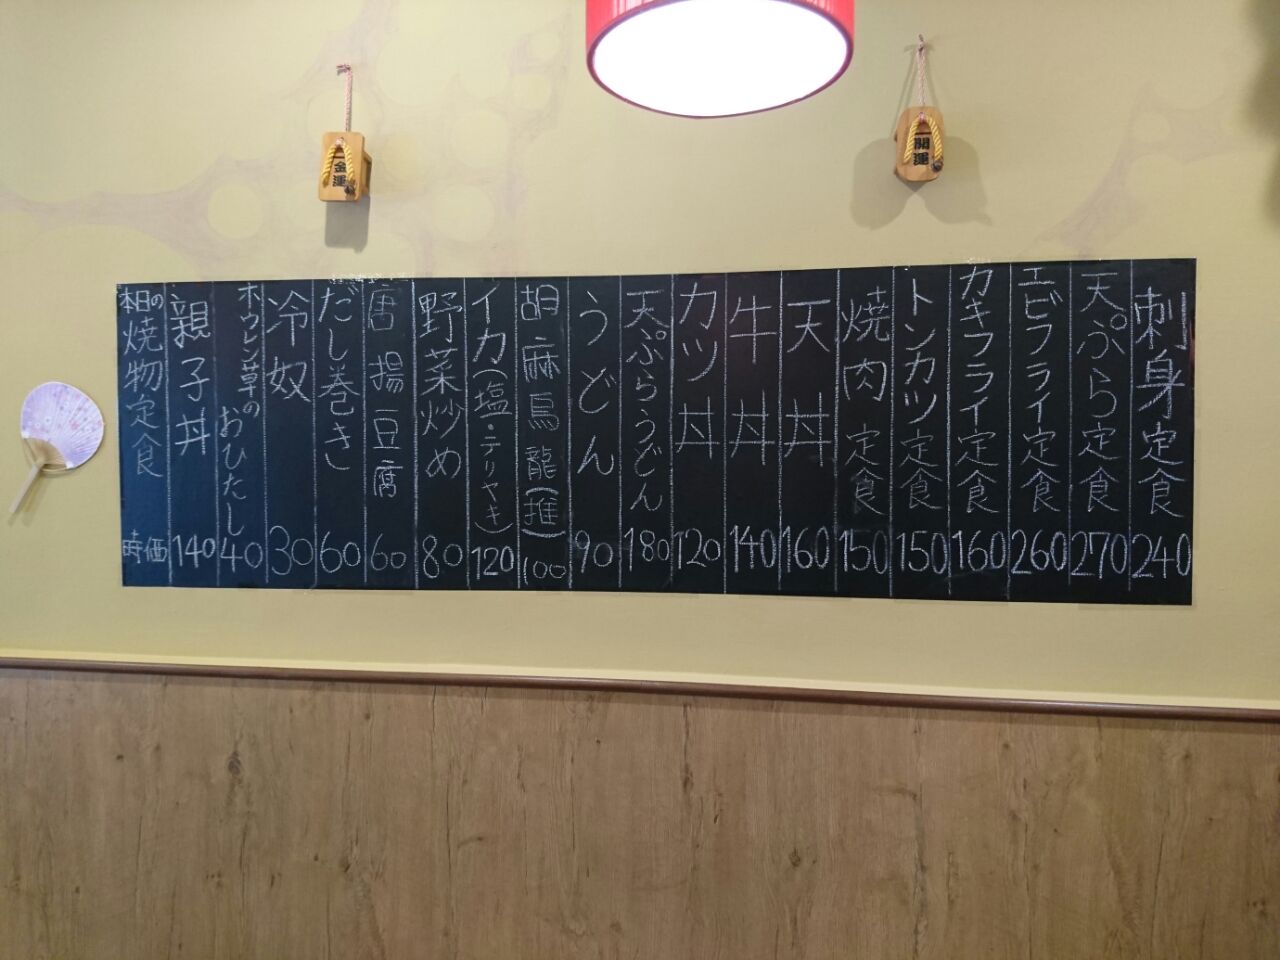 金運
開運
刺身定食 240
天ぷら定食 270
エビフライ定食 260
カキフライ定食 160
トンカツ定食 150
焼肉定食 150
天丼 160
牛丼 140
カツ丼 120
天ぷらうどん 180
うどん 90
胡麻烏龍(推) 100
イカ(塩・テリヤキ) 120
野菜炒め 80
唐揚豆腐 60
だし巻き 60
冷奴 30
ホウレン草のおひたし 40
親子丼 140
本日の焼物定食 時価